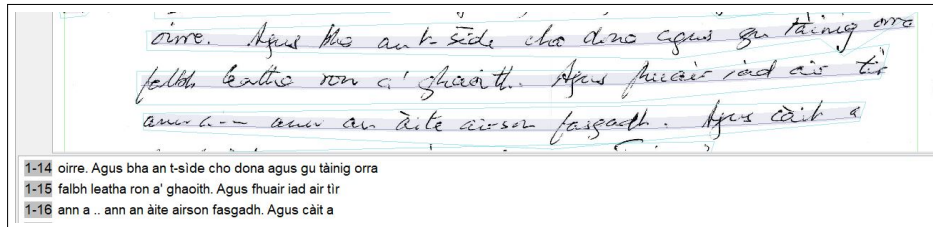 oirre. Agus bha an t-sìde cho dona agus gu tàinig orra
falbh leatha ron a' ghaoith. Agus fhuair iad air tìr
ann a -- ann an àite airson fasgadh. Agus càit a
1-14 oirre. Agus bha an t-sìde cho dona agus gu tàinig orra
1-15 falbh leatha ron a' ghaoith. Agus fhuair iad air tìr
1-16 ann a .. ann an àite airson fasgadh. Agus càit a